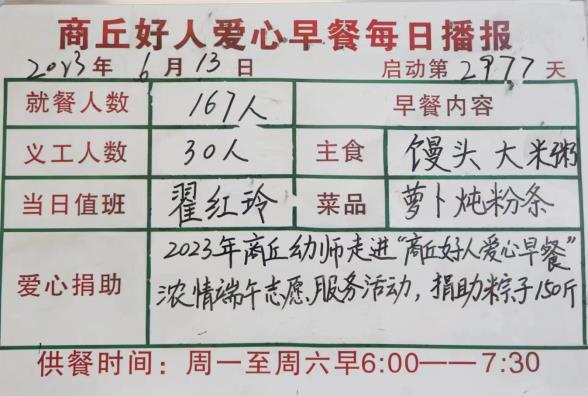 商丘好人爱心早餐每日播报
2023年6月13日 启动第2977天
就餐人数 167人 早餐内容
义工人数 30人 主食 馒头 大米粥
当日值班 翟红玲 菜品 萝卜炖粉条
爱心捐助
2023年商丘幼师走进“商丘好人爱心早餐”
浓情端午志愿服务活动，捐助粽子150斤
供餐时间：周一至周六早6:00——7:30